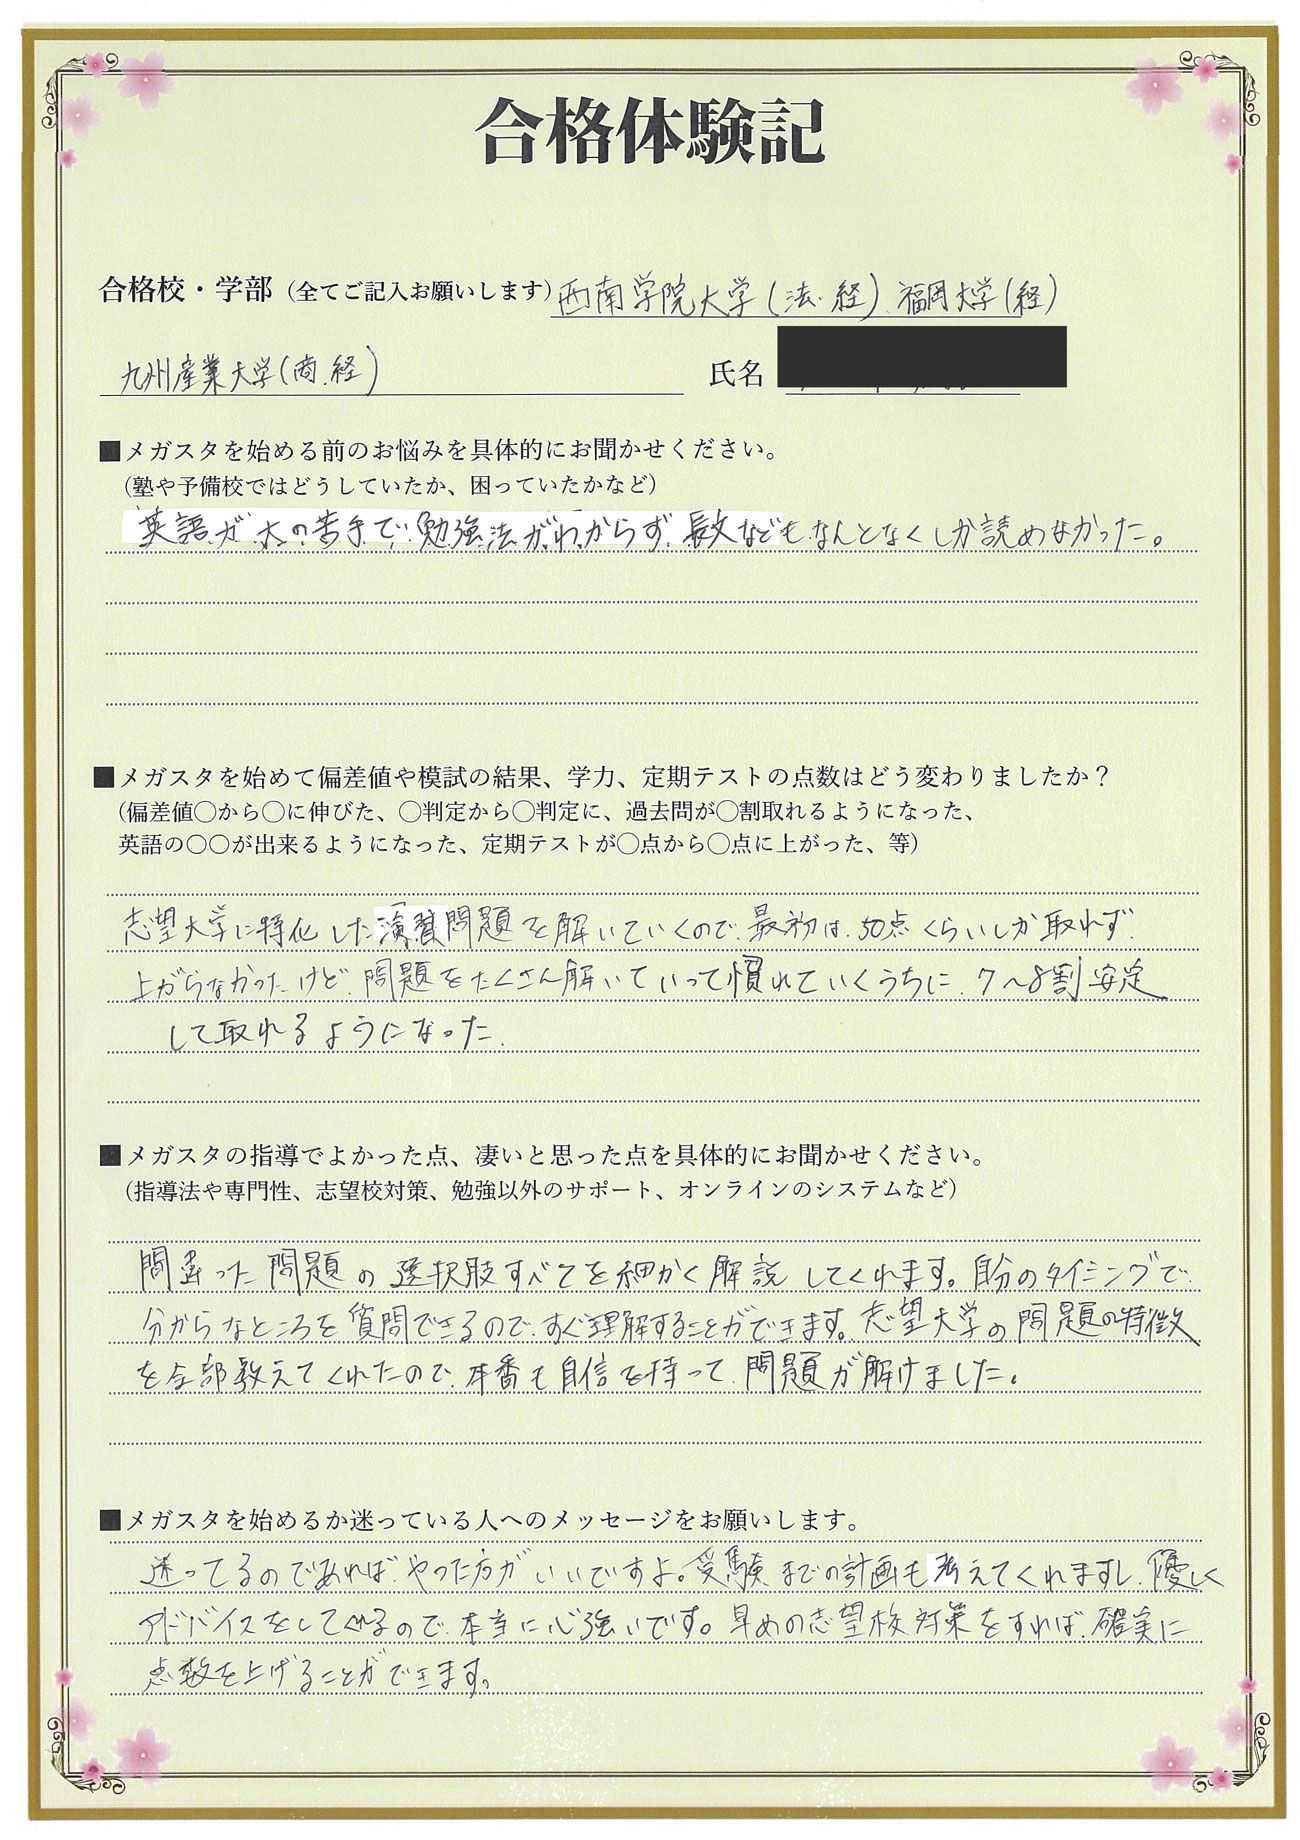 合格体験記
合格校・学部（全てご記入お願いします）西南学院大学(法・経)、福岡大学(経)
九州産業大学(商、経) 氏名
■メガスタを始める前のお悩みを具体的にお聞かせください。
（塾や予備校ではどうしていたか、困っていたかなど）
英語が大の苦手で、勉強法がわからず、長文などもなんとなくしか読めなかった。
■メガスタを始めて偏差値や模試の結果、学力、定期テストの点数はどう変わりましたか？
（偏差値〇から〇に伸びた、〇判定から〇判定に、過去問が〇割取れるようになった、
英語の〇〇が出来るようになった、定期テストが〇点から〇点に上がった、等）
志望大学に特化した演習問題を解いていくので、最初は、50点くらいしか取れず、
上がらなかったけど、問題をたくさん解いていって慣れていくうちに、7〜8割安定
して取れるようになった。
■メガスタの指導でよかった点、凄いと思った点を具体的にお聞かせください。
（指導法や専門性、志望校対策、勉強以外のサポート、オンラインのシステムなど）
間違った問題の選択肢すべてを細かく解説してくれます。自分のタイミングで、
分からなところを質問できるので、すぐ理解することができます。志望大学の問題の特徴
を全部教えてくれたので、本番も自信を持って、問題が解けました。
■メガスタを始めるか迷っている人へのメッセージをお願いします。
迷ってるのであれば、やった方がいいですよ。受験までの計画も考えてくれますし、優しく
アドバイスをしてくれるので、本当に心強いです。早めの志望校対策をすれば、確実に
点数を上げることができます。